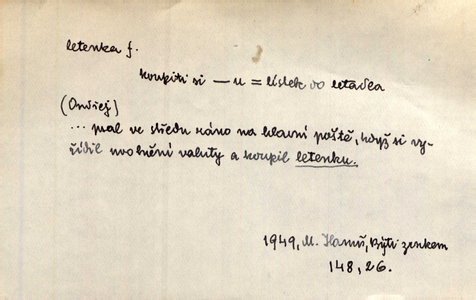 letenka f.
koupiti si — u = lístek do letadla
(Ondřej)
... ptal ve středu ráno na hlavní poště, když si vy-
řídil uvolnění valuty a koupil letenku.
1949, M. Hanuš, Býti ziskem
148, 26.